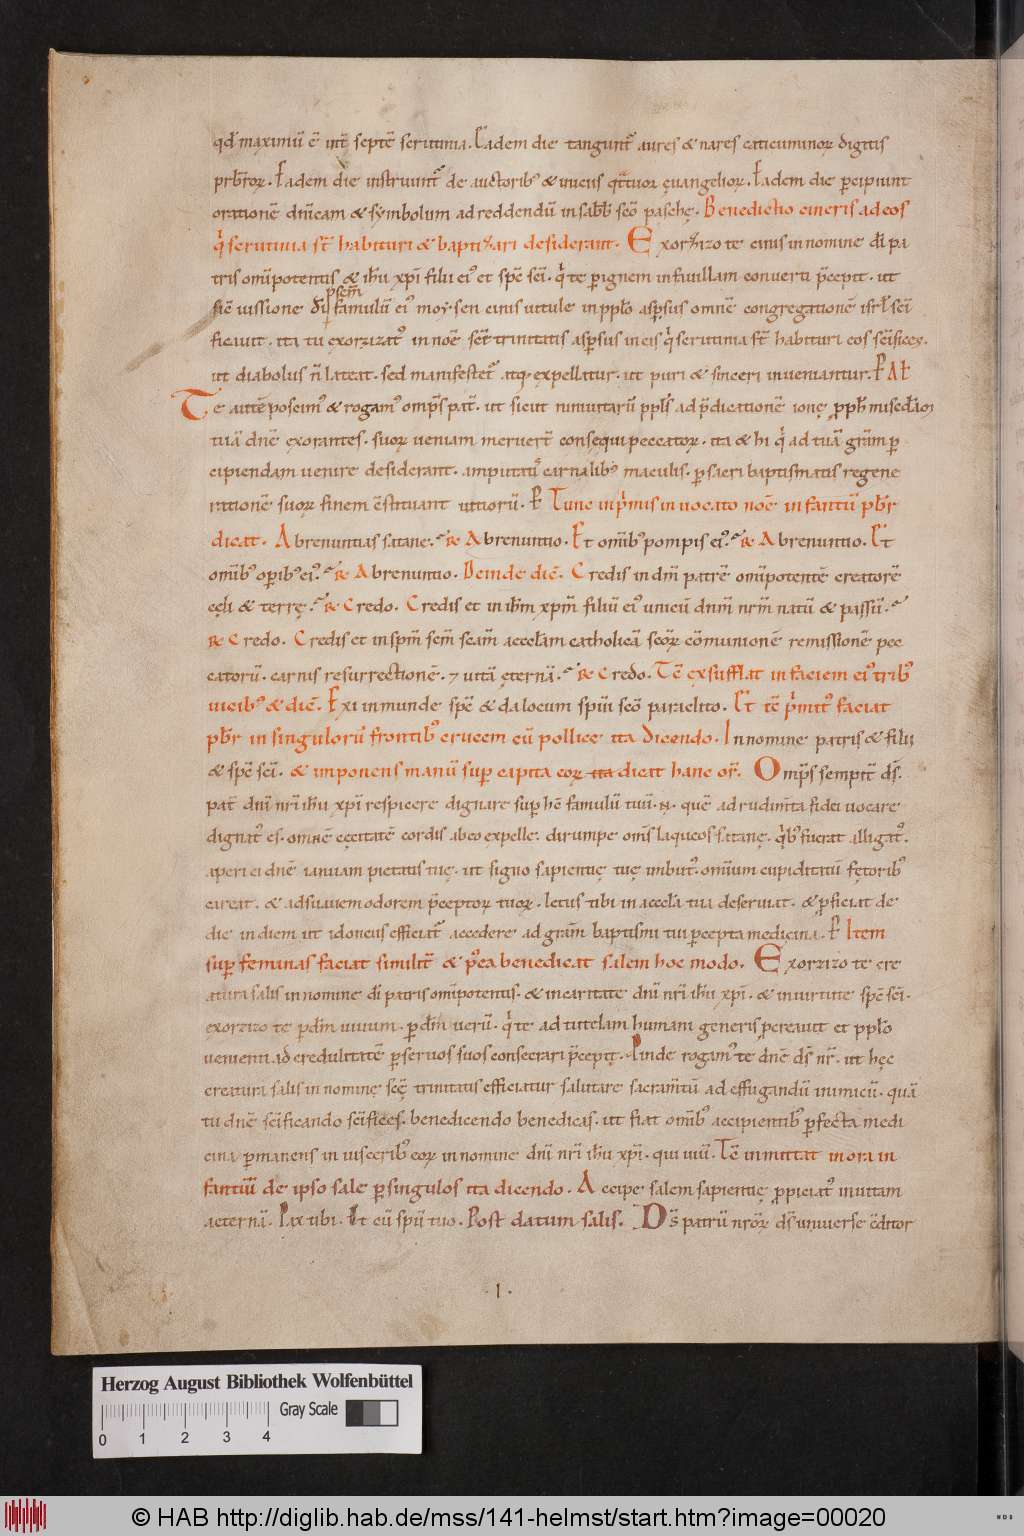 qd maximū ē int̄ septē scrutinia. Eadem die tangunt̄ aures & nares caticuminoꝝ digitis
prb̄roꝝ. Eadem die instruunt̄ de auctorib; & initiis qttuoꝝ euangelioꝝ. Eadem die percipiunt
orationē dn̄icam & symbolum ad reddendū in sabb̄ scō paschę. Benedictio cineris ad eos
qi scrutinia st̄ habituri & baptizari desiderant. Exorzizo te cinis in nomine dī pa
tris omīpotentis & ih̄u xp̄i filii ei; et sp̄c sc̄i. qi te p ignem in fauillam conuerti p̄cepit. ut
sic̄ iussione dī p sc̄m famulū ei; moysen cinis uitule in pplo aspsus omnē congregationē isrl̄ sc̄i
ficauit. ita tu exorzizat; in noē sc̄e trinitatis aspsus in eis qi scrutinia st̄ habituri eos sc̄ifices.
ut diabolus n̄ lateat. sed manifestet̄ atq; expellatur. ut puri & sinceri inueniantur. P Al̄
Te autē poscim; & rogam; omps pat̄. ut sicut niniuitarū ppls̄ ad p̄dicationē ionę pph̄
tuā dn̄e exorantes. suoꝝ ueniam meruert̄ consequi peccatoꝝ. ita & hi qi ad tuā grām p
cipiendam uenire desiderant. amputati carnalib; maculis. p sacri baptismatis regene
rationē suoꝝ finem uitioru. P Tunc inp̄mis inuocato noē infantū pb̄r
dicat. Abrenuntias satane. R Abrenuntio. Et omīb; pompis ei;. R Abrenuntio. Et
omīb; opib; ei;. R Abrenuntio. Deinde dic̄. Credis in dm̄ patrē omīpotentē creatorē
cęli & terrę. R Credo. Credis et in ih̄m xpm̄ filiū ei; unicū dnm̄ nrm̄ natū & passū.
R Credo. Credis et in spm̄ scm̄ scam̄ acclam catholicā scoꝝ cōmunionē remissionē pec
catorū. carnis resurrectionē. ⁊ uitā ęternā. R Credo. Tc̄ exsufflat in faciem ei; trib;
uicib; & dic̄. Exi inmunde spc̄ & da locum spūi scō paraclito. Et tc̄ p̄mit; faciat
pb̄r in singulorū frontib; crucem cū pollice ita dicendo. In nomine patris & filii
& spc̄ sc̄i. & imponens manū sup capita eoꝝ ita dicat hanc or̄. Omps̄ sempit̄ ds̄.
pat̄ dn̄i nr̄i ih̄u xp̄i respicere dignare sup hc̄ famulū tuū .N. quē ad rudimta fidei uocare
dignat; es. omnē cęcitatē cordis ab eo expelle. dirumpe omīs laqueos satanę. qib; fuerat alligat;.
aperi ei dn̄e ianuam pietatis tuę. ut signo sapientię tuę imbut;. omium cupiditatū fętorib;
careat. & ad suauem odorem p̄ceptoꝝ tuoꝝ. letus tibi in accla tua deseruiat. & pficiat de
die in diem ut idoneus efficiat̄ accedere ad grām baptismi tui percepta medicina. P Item
sup feminas faciat similit̄ & p̄ea benedicat salem hoc modo. Exorzizo te cre
atura salis in nomine dī patris omīpotentis. & in caritate dn̄i nr̄i ih̄u xp̄i. & in uirtute spc̄ sc̄i.
exorzizo te p dm̄ uiuum. p dm̄ uerū. qi te ad tutelam humani generis pcreauit et pplo
uenienti ad credulitatē p seruos suos consecrari p̄cepit. Proinde rogam; te dn̄e ds̄ nr̄. ut hęc
creatura salis in nominę scę̄ trinitatis efficiatur salutare sacramtū ad effugandū inimicū. quā
tu dn̄e sc̄ificando sc̄ifices. benedicendo benedicas. ut fiat omīb; accipientib; pfecta medi
cina pmanens in uiscerib; eoꝝ in nomine dn̄i nr̄i ih̄u xp̄i. qui uiū. Tc̄ inmittat in ora in
fantiū de ipso sale p singulos ita dicendo. Accipe salem sapientię ppiciat; in uitam
aeternā. Pax tibi. Et cū spū tuo. Post datum salis. Ds̄ patrū nroꝝ ds̄ uniuerse c̄ditor
.I.
Herzog August Bibliothek Wolfenbüttel
Gray Scale
0 1 2 3 4
© HAB http://diglib.hab.de/mss/141-helmst/start.htm?image=00020